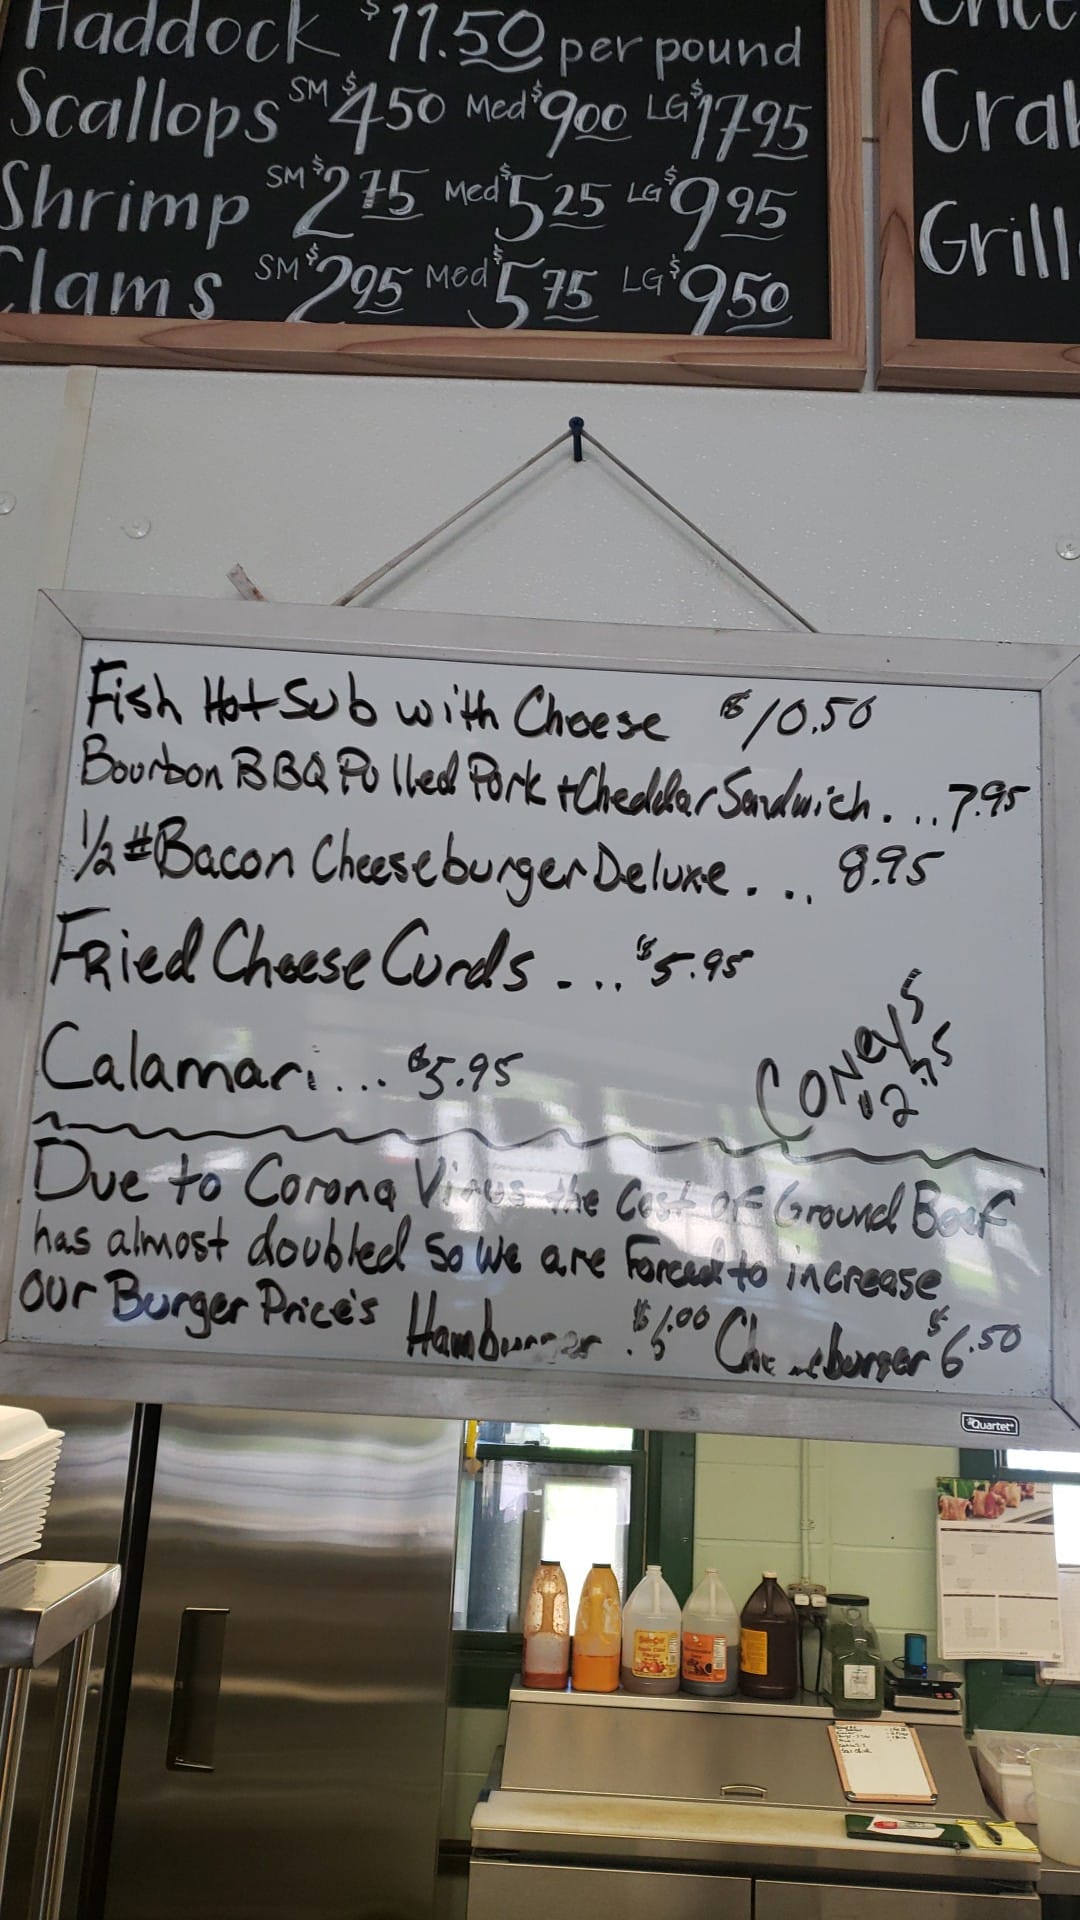 Haddock $11.50 per pound
Scallops SM $4.50 Med $9.00 LG $17.95
Shrimp SM $2.75 Med $5.25 LG $9.95
Clams SM $2.95 Med $5.75 LG $9.50
Grill
Fish Hot Sub with Cheese $10.50
Bourbon BBQ Pulled Pork + Cheddar Sandwich . ... 7.95
1/2 # Bacon Cheeseburger Deluxe . .. 8.95
Fried Cheese Curds . ... $5.95
Calamari ... $5.95
Coneys
Due to Corona Virus the Cost of Ground Beef
has almost doubled so we are Forced to increase
our Burger Price's Hamburger Cheeseburger $6.50
Quartet